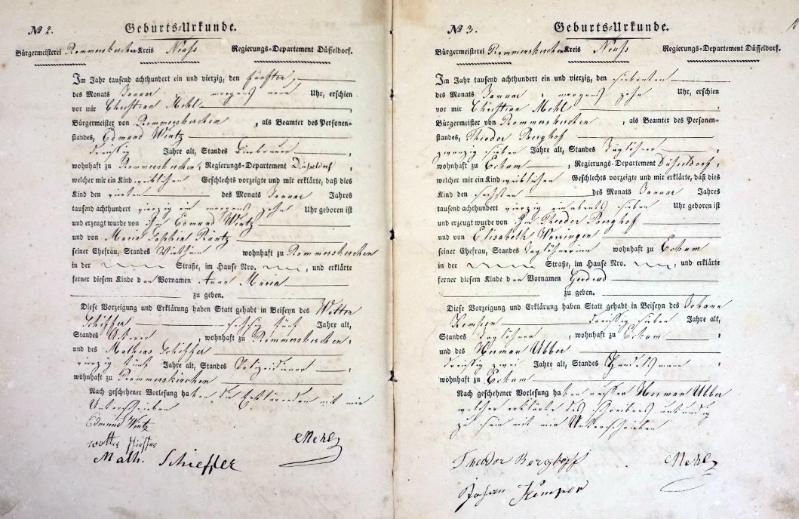 № 2.
Geburts-Urkunde.
Bürgermeisterei Rommerskirchen Kreis Neuss Regierungs-Departement Düsseldorf.
Im Jahr tausend achthundert ein und vierzig, den fünften
des Monats Januar morgens neun Uhr, erschien
vor mir Christian Mehl
Bürgermeister von Rommerskirchen, als Beamter des Personen-
standes, Edmund Wirtz
dreißig Jahre alt, Standes
wohnhaft zu Rommerskirchen, Regierungs-Departement Düsseldorf,
welcher mir ein Kind weiblichen Geschlechts vorzeigte und mir erklärte, daß dies
Kind den vierten des Monats Januar Jahres
tausend achthundert vierzig ein morgens zehn Uhr geboren ist
und erzeugt wurde von ihm Edmund Wirtz
und von Maria Sophia
seiner Ehefrau, Standes wohnhaft zu Rommerskirchen
in der Straße, im Hause Nro. , und erklärte
ferner diesem Kinde den Vornamen Anna Maria
zu geben.
Diese Vorzeigung und Erklärung haben Statt gehabt in Beiseyn des
Schieffer Jahr alt,
Standes , wohnhaft zu Rommerskirchen
und des Mathias Schieffer
vierzig Jahre alt, Standes
wohnhaft zu Rommerskirchen
Nach geschehener Vorlesung haben die Erklärenden mit mir
Unterschrieben
Edmund Wirtz
Mehl
Math. Schieffer
№ 3.
Geburts-Urkunde.
Bürgermeisterei Rommerskirchen Kreis Neuss Regierungs-Departement Düsseldorf.
Im Jahr tausend achthundert ein und vierzig, den siebenten
des Monats Januar, morgens zehn Uhr, erschien
vor mir Christian Mehl
Bürgermeister von Rommerskirchen, als Beamter des Personen-
standes, Theodor Berghof
zwanzig sieben Jahre alt, Standes Taglöhner
wohnhaft zu Eckum, Regierungs-Departement Düsseldorf,
welcher mir ein Kind weiblichen Geschlechts vorzeigte und mir erklärte, daß dies
Kind den sechsten des Monats Januar Jahres
tausend achthundert vierzig ein abends sieben Uhr geboren ist
und erzeugt wurde von ihm Theodor Berghof
und von Elisabeth
seiner Ehefrau, Standes Taglöhnerin wohnhaft zu Eckum
in der Straße, im Hause Nro. , und erklärte
ferner diesem Kinde den Vornamen
zu geben.
Diese Vorzeigung und Erklärung haben Statt gehabt in Beiseyn des Johann
Kemper dreißig sieben Jahre alt,
Standes Taglöhner, wohnhaft zu Eckum
und des Herman Ubber
dreißig zwei Jahre alt, Standes Handelsmann
wohnhaft zu Eckum
Nach geschehener Vorlesung haben außer Herman Ubber
welcher erklärte des Schreibens unkundig
zu sein mit mir Unterschrieben
Theodor Berghoff
Mehl
Johan Kemper